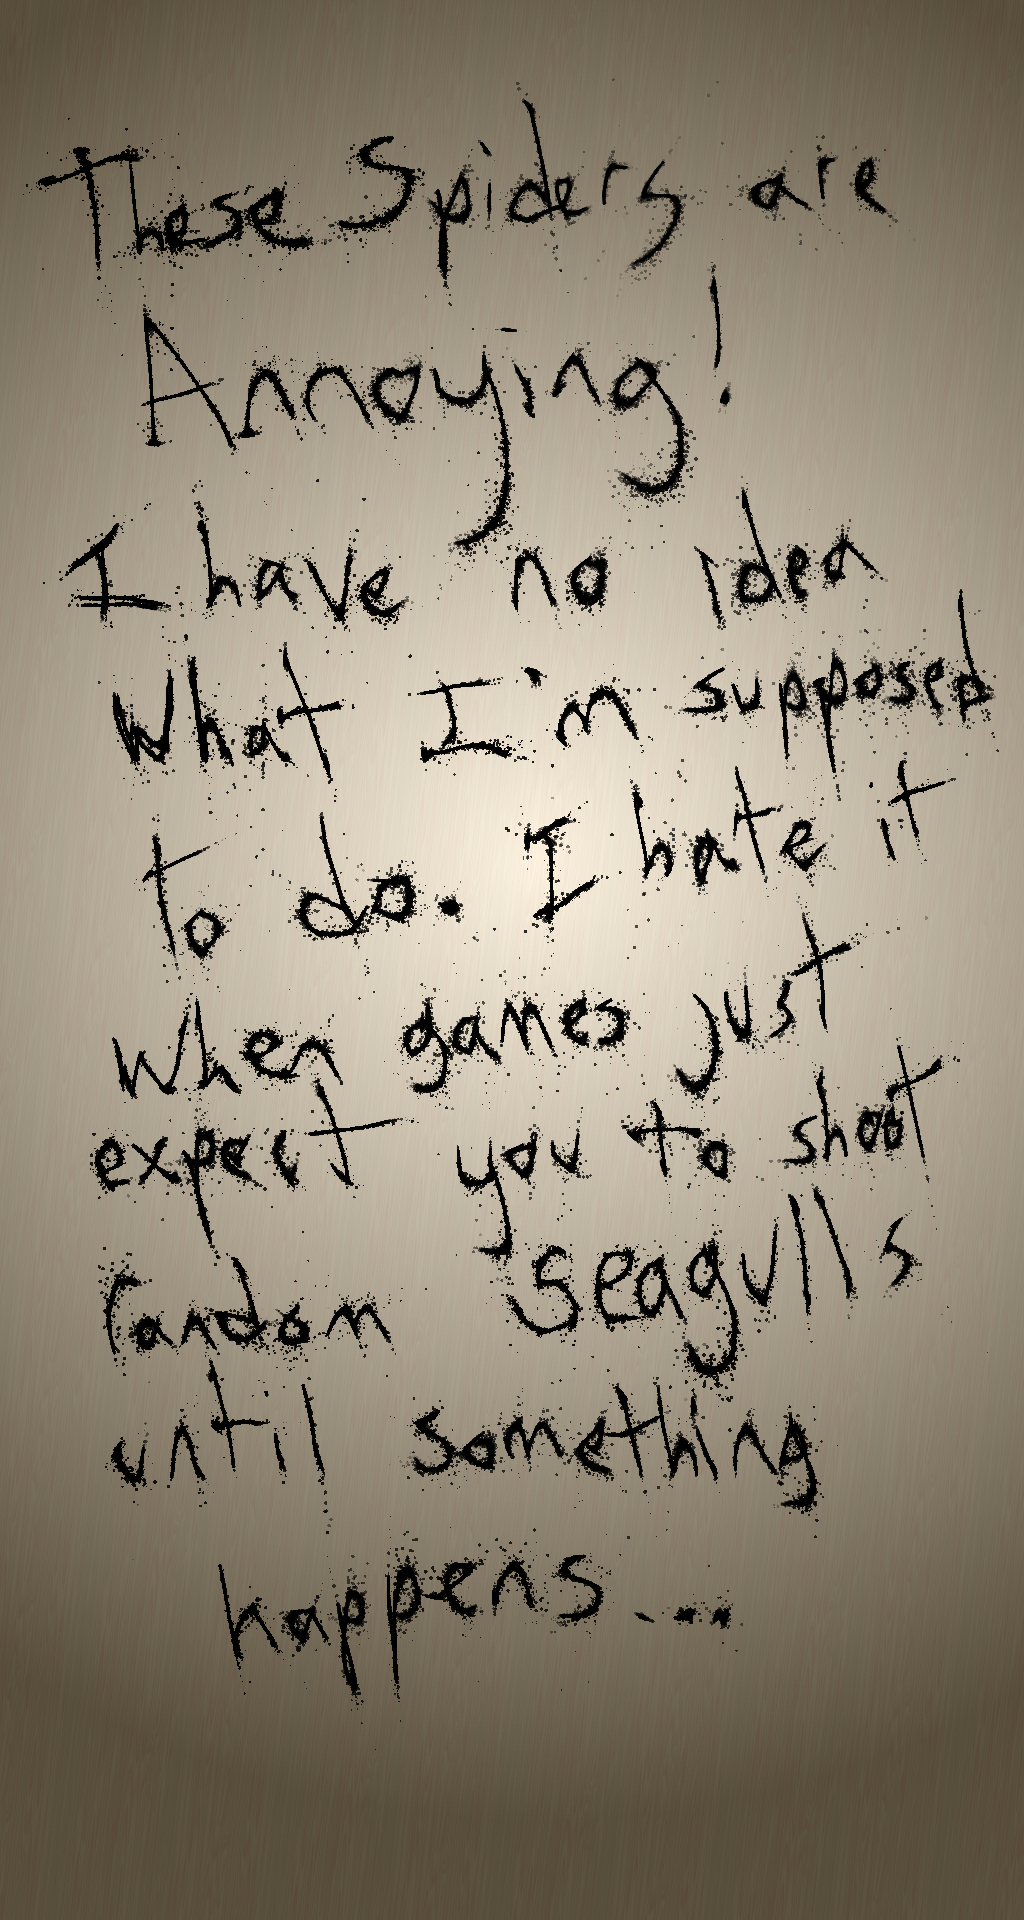 These Spiders are
Annoying!
I have no idea
What I'm supposed
to do. I hate it
when games just
expect you to shoot
random seagulls
until something
happens...